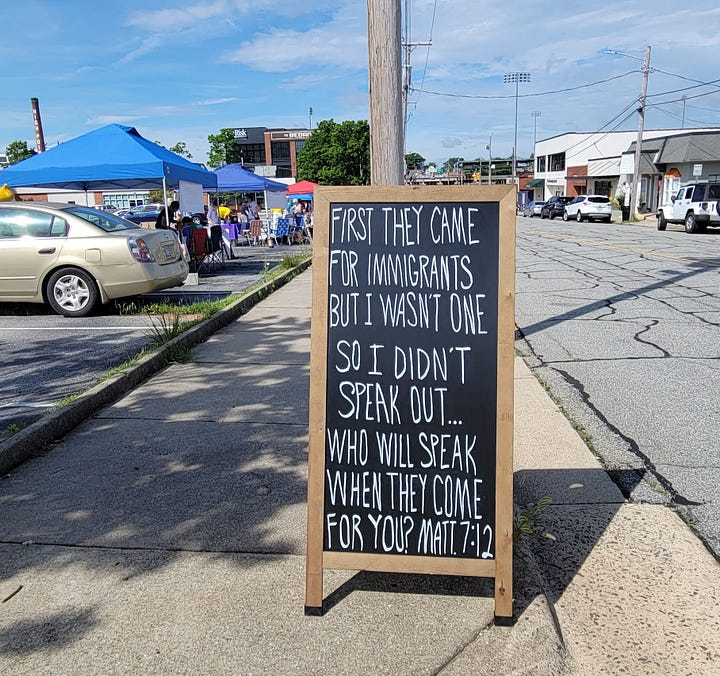 Risk
FIRST THEY CAME
FOR IMMIGRANTS
BUT I WASN'T ONE
SO I DIDN'T
SPEAK OUT...
WHO WILL SPEAK
WHEN THEY COME
FOR YOU? MATT. 7:12